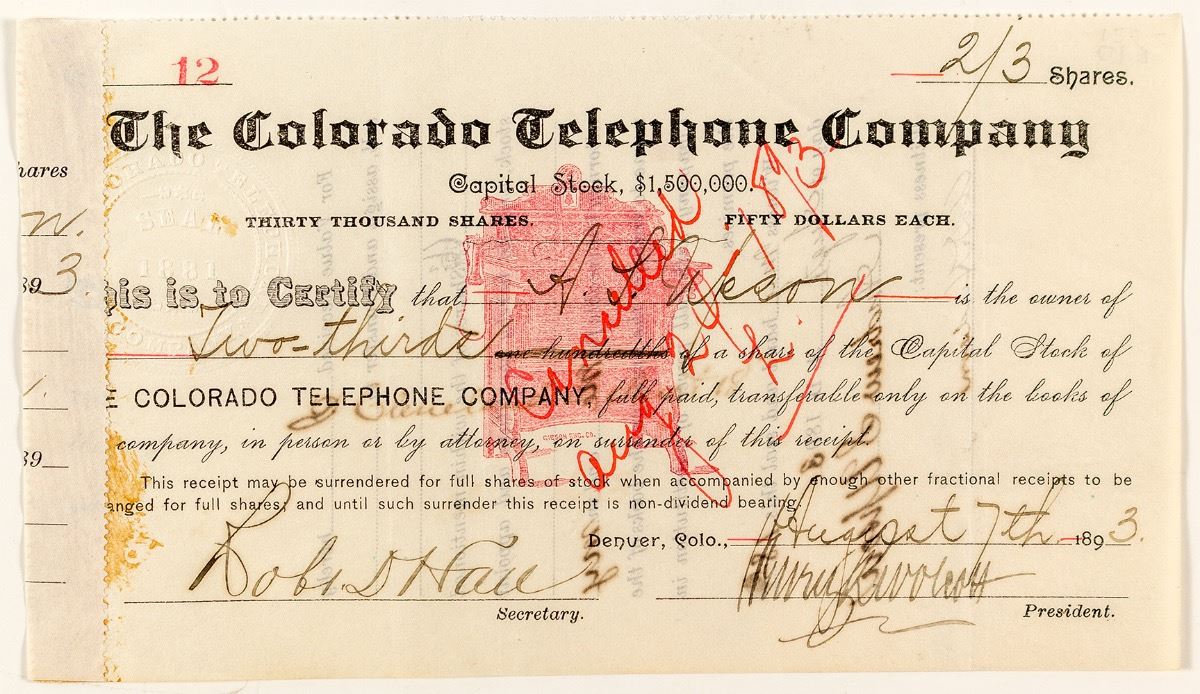 12
2/3 Shares.
The Colorado Telephone Company
hares
Capital Stock, $1,500,000.
THIRTY THOUSAND SHARES. FIFTY DOLLARS EACH.
n.
893
his is to Certify that A. is the owner of
Two-thirds one hundredths of a share of the Capital Stock of
E COLORADO TELEPHONE COMPANY, full paid, transferable only on the books of
company, in person or by attorney, on surrender of this receipt.
Canceled
Aug 26/1893
89
This receipt may be surrendered for full shares of stock when accompanied by enough other fractional receipts to be
anged for full shares; and until such surrender this receipt is non-dividend bearing.
Denver, Colo., August 7th 1893.
Robt. D Hall
Secretary.
Henry R Wolcott
President.
1881